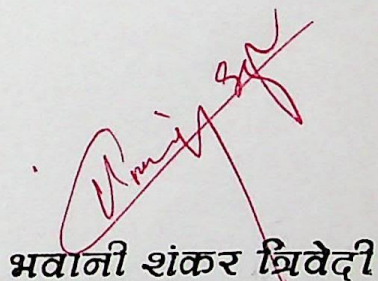 भवानी शंकर त्रिवेदी